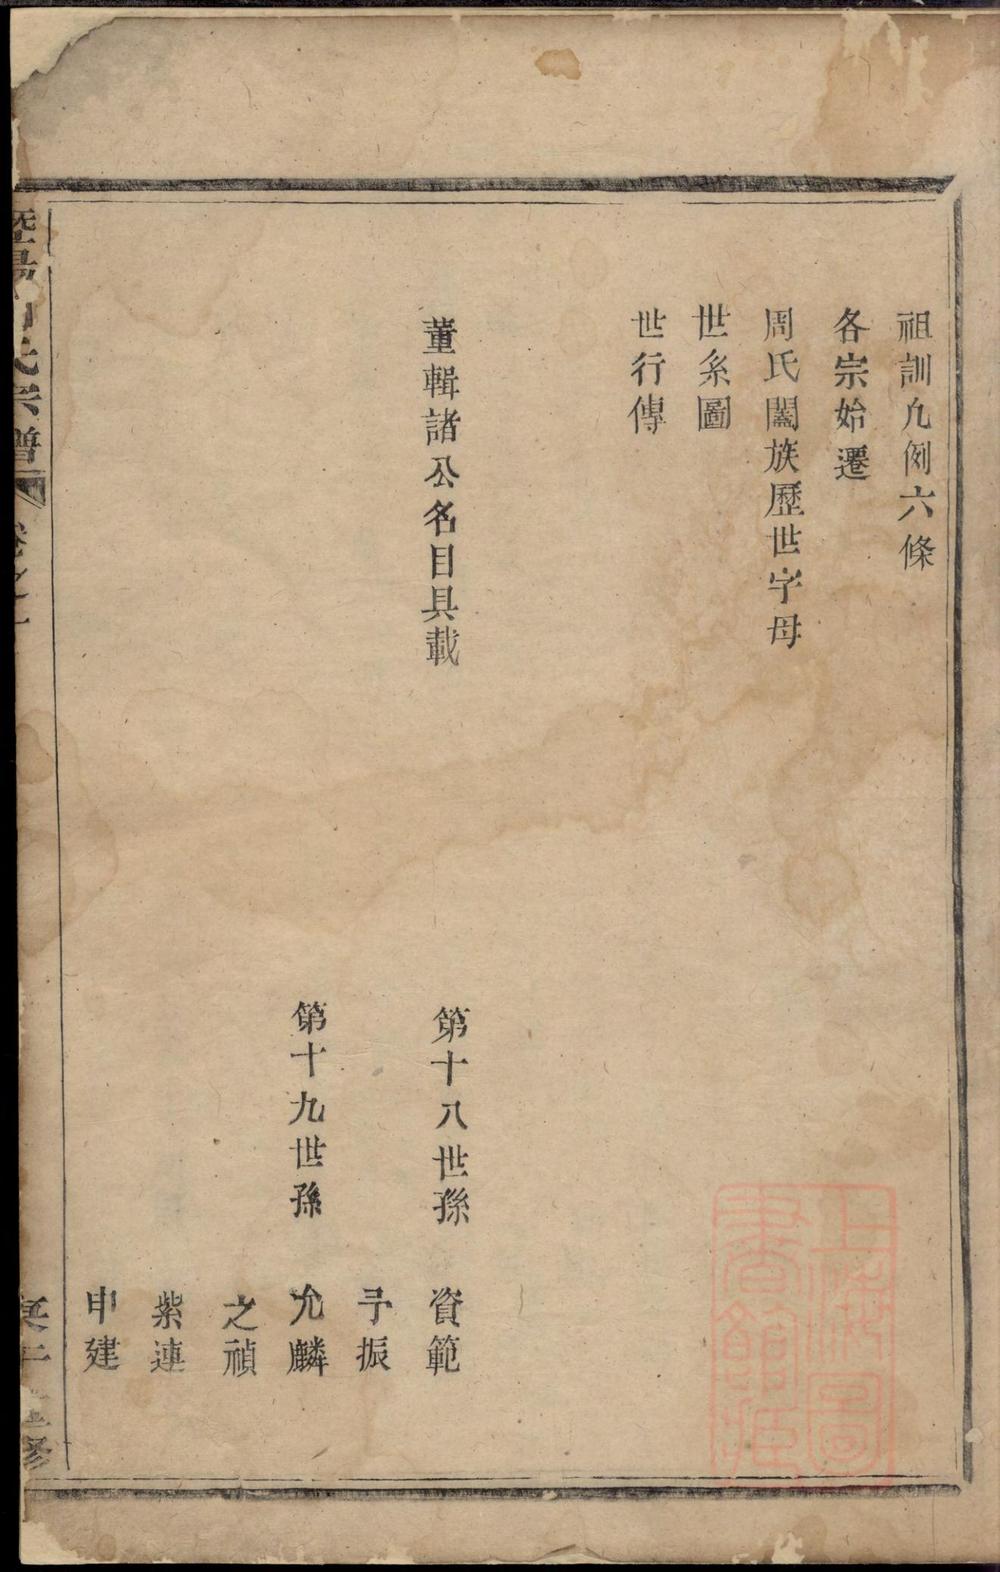 祖訓凡例六條
各宗始遷
周氏闔族歷世字母
世系圖
世行傳
董輯諸公名目具載
第十八世孫 資範
予振
第十九世孫 允麟
之禎
紫連
申建
氏宗譜 卷之一
上海圖書館藏